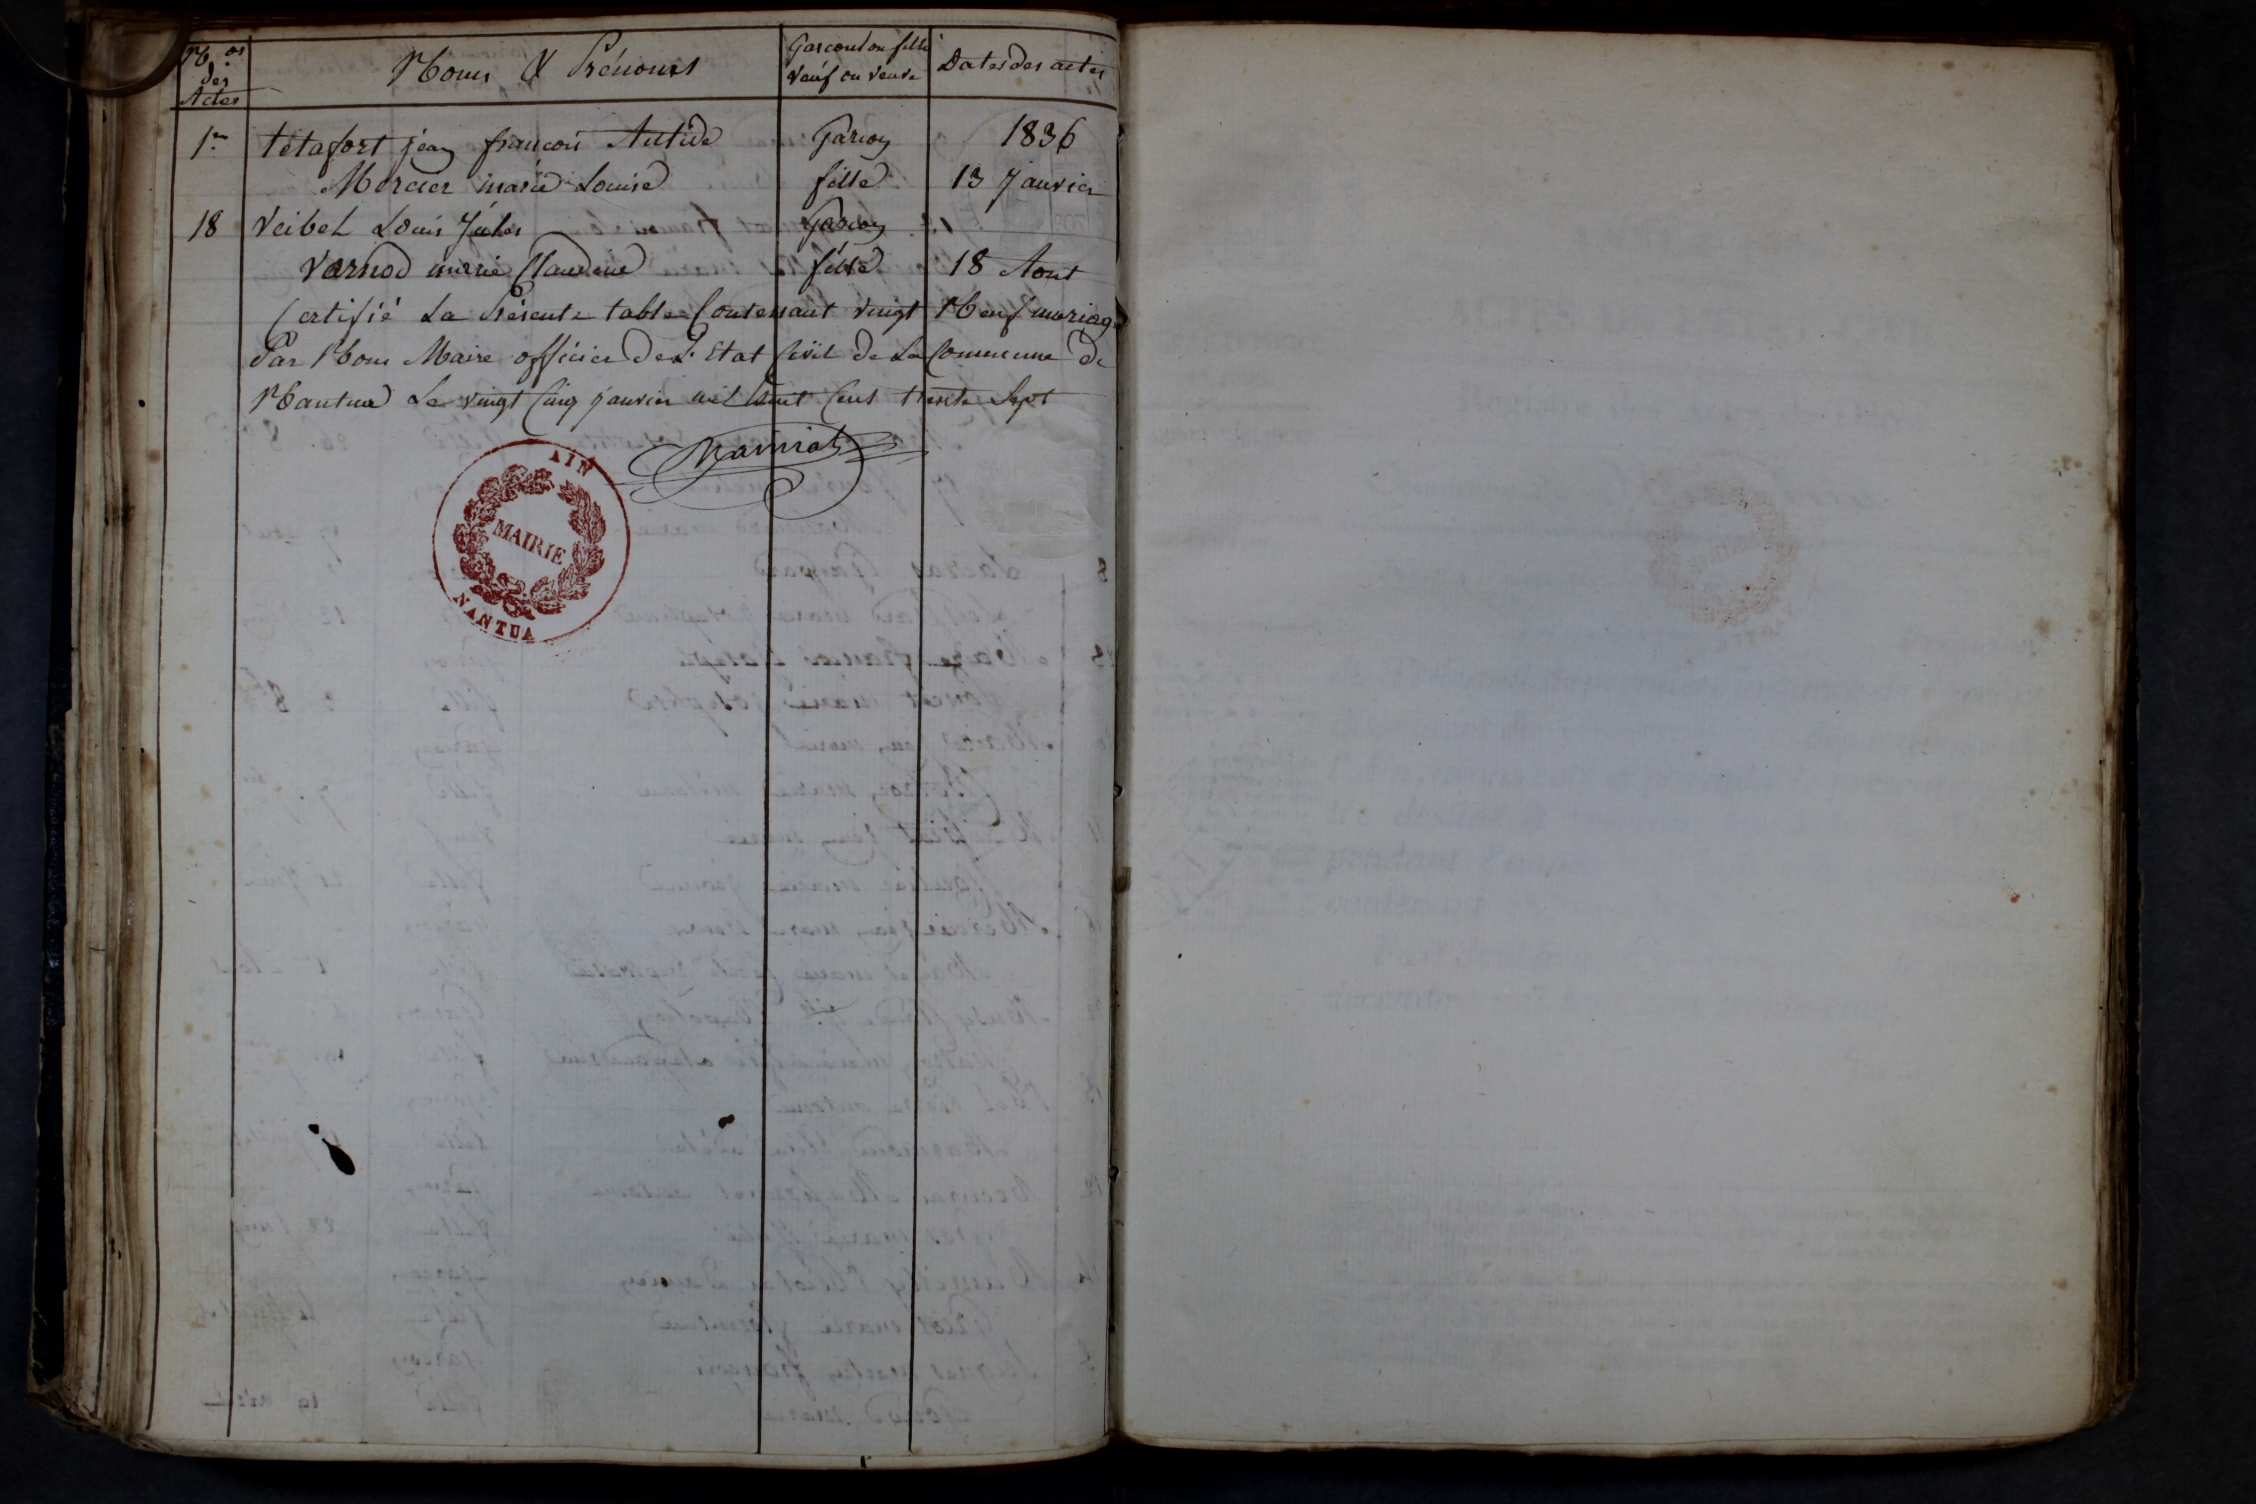 Nos des Actes
Noms & Prénoms
Garçon ou fille veuf ou veuve
Dates des actes
1er tétafort jean françois Antide Garçon 1836
Mercier marie Louise fille 13 Janvier
18 Veibel Louis Jules Garçon
Varnod marie Claudine fille 18 Aout
Certifié La Présente table Contenant vingt Neuf mariages
Par Nous Maire officier de L'Etat Civil de La Commune de
Nantua Le vingt Cinq janvier mil huit Cent trente Sept
AIN
MAIRIE
NANTUA